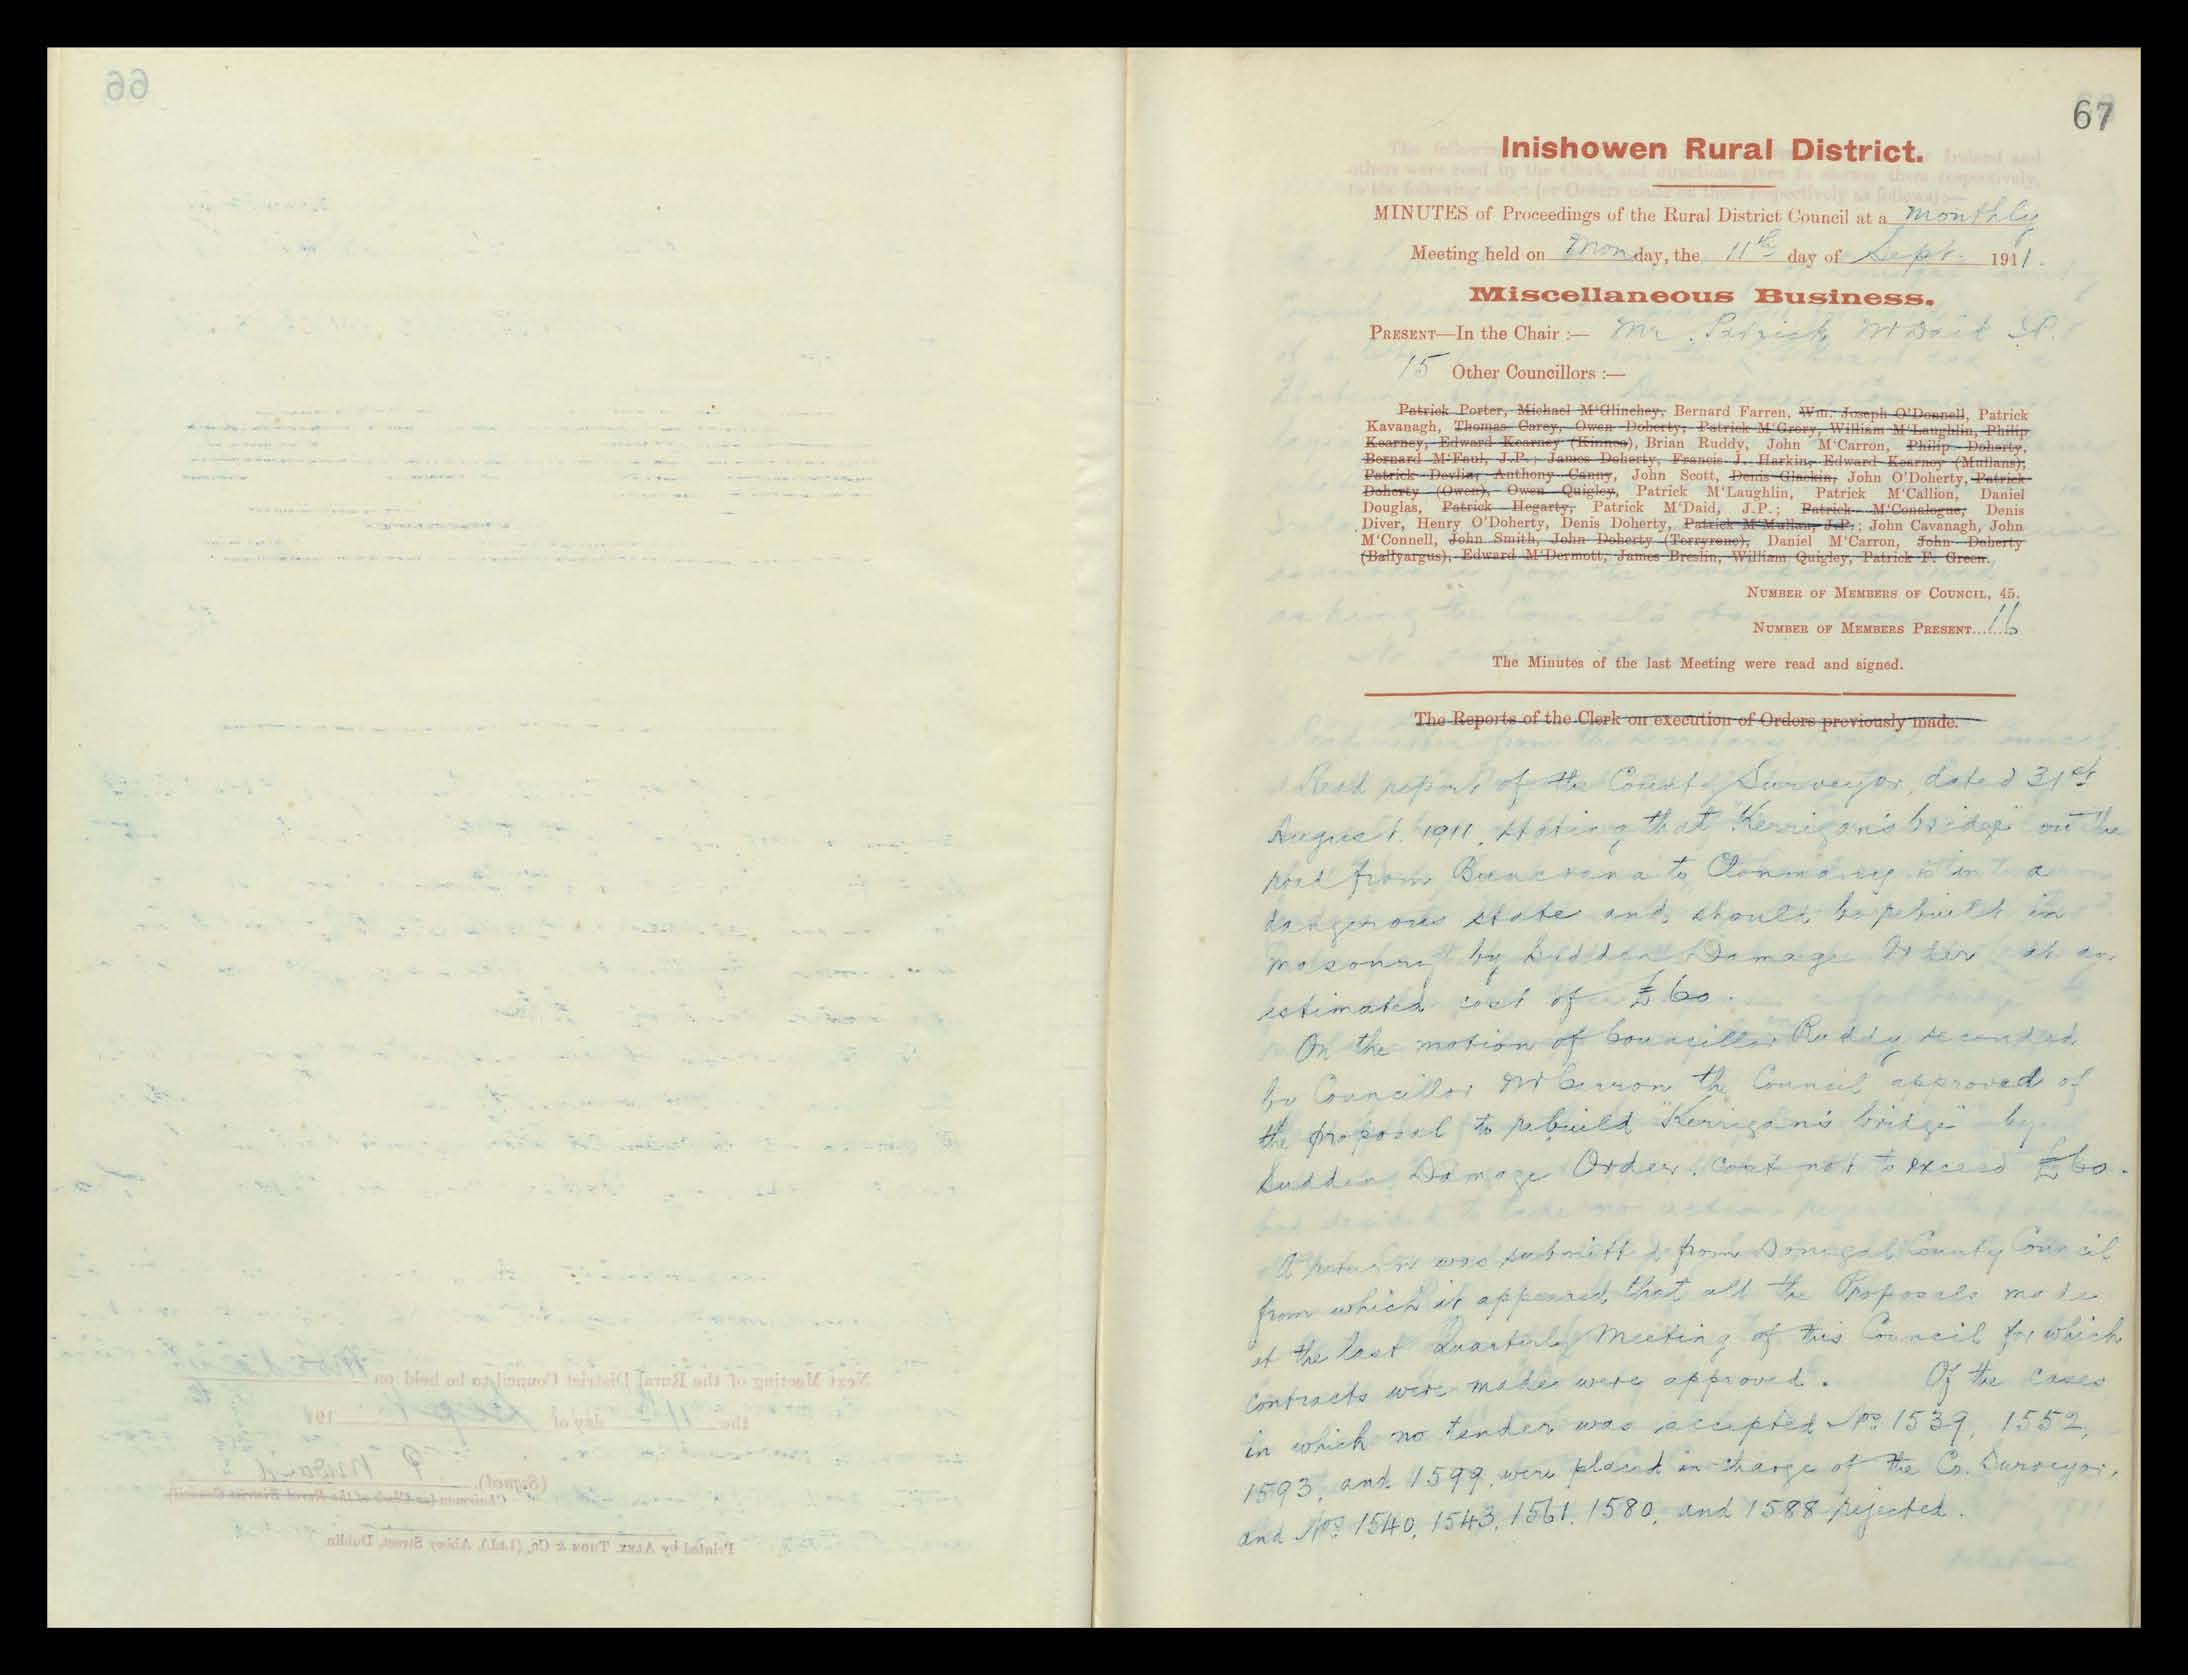 67
Inishowen Rural District.
MINUTES of Proceedings of the Rural District Council at a monthly
Meeting held on Monday, the 11th day of Sept. 1911.
Miscellaneous Business.
PRESENT—In the Chair :— Mr. Patrick McDaid J.P.
15 Other Councillors :—
Patrick Porter, Michael M'Glinchey, Bernard Farren, Wm. Joseph O'Donnell, Patrick
Kavanagh, Thomas Carey, Owen Doherty, Patrick M'Grory, William M'Laughlin, Philip
Kearney, Edward Kearney (Kinnea), Brian Ruddy, John M'Carron, Philip Doherty,
Bernard M'Faul, J.P.; James Doherty, Francis J. Harkin, Edward Kearney (Mullans),
Patrick Devlin, Anthony Canny, John Scott, Denis Glackin, John O'Doherty, Patrick
Doherty (Owen), Owen Quigley, Patrick M'Laughlin, Patrick M'Callion, Daniel
Douglas, Patrick Hegarty, Patrick M'Daid, J.P.; Patrick M'Conalogue, Denis
Diver, Henry O'Doherty, Denis Doherty, Patrick M'Mullan, J.P.; John Cavanagh, John
M'Connell, John Smith, John Doherty (Terryrone), Daniel M'Carron, John Doherty
(Ballyargus), Edward M'Dermott, James Breslin, William Quigley, Patrick F. Green.
NUMBER OF MEMBERS OF COUNCIL, 45.
NUMBER OF MEMBERS PRESENT.......16
The Minutes of the last Meeting were read and signed.
The Reports of the Clerk on execution of Orders previously made.
Read report of the County Surveyor, dated 31st
August 1911, stating that "Kerrigan's bridge" on the
road from Buncrana to Clonmany is in a
dangerous state and should be rebuilt in
masonry by Sudden Damage Order at an
estimated cost of £60.
On the motion of Councillor Ruddy seconded
by Councillor McCarron the Council approved of
the proposal to rebuild "Kerrigan's bridge" by
Sudden Damage Order, cost not to exceed £60.
A return was submitted from Donegal County Council
from which it appeared that all the Proposals made
at the last Quarterly Meeting of this Council for which
contracts were made were approved. Of the cases
in which no tender was accepted Nos. 1539, 1552,
1593, and 1599, were placed in charge of the Co. Surveyor,
and Nos. 1540, 1543, 1561, 1580, and 1588 rejected.